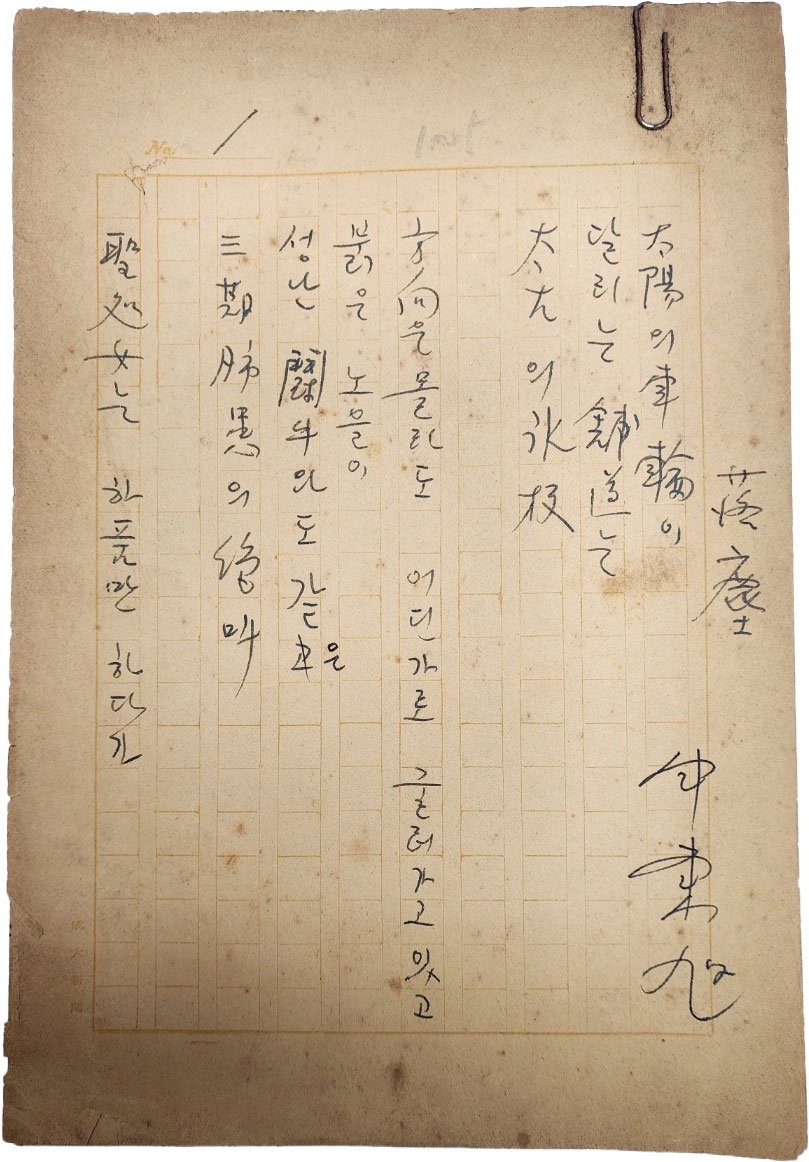 落塵
尹東旭
太陽의車輪이
달리는 舖道는
太古의氷板
方向은몰라도 어딘가로 굴러가고 있고
붉은 노을이
성난 鬪牛와도 같은
三期肺患의絶叫
聖処女는 하품만 하다가
No 1
成大新聞